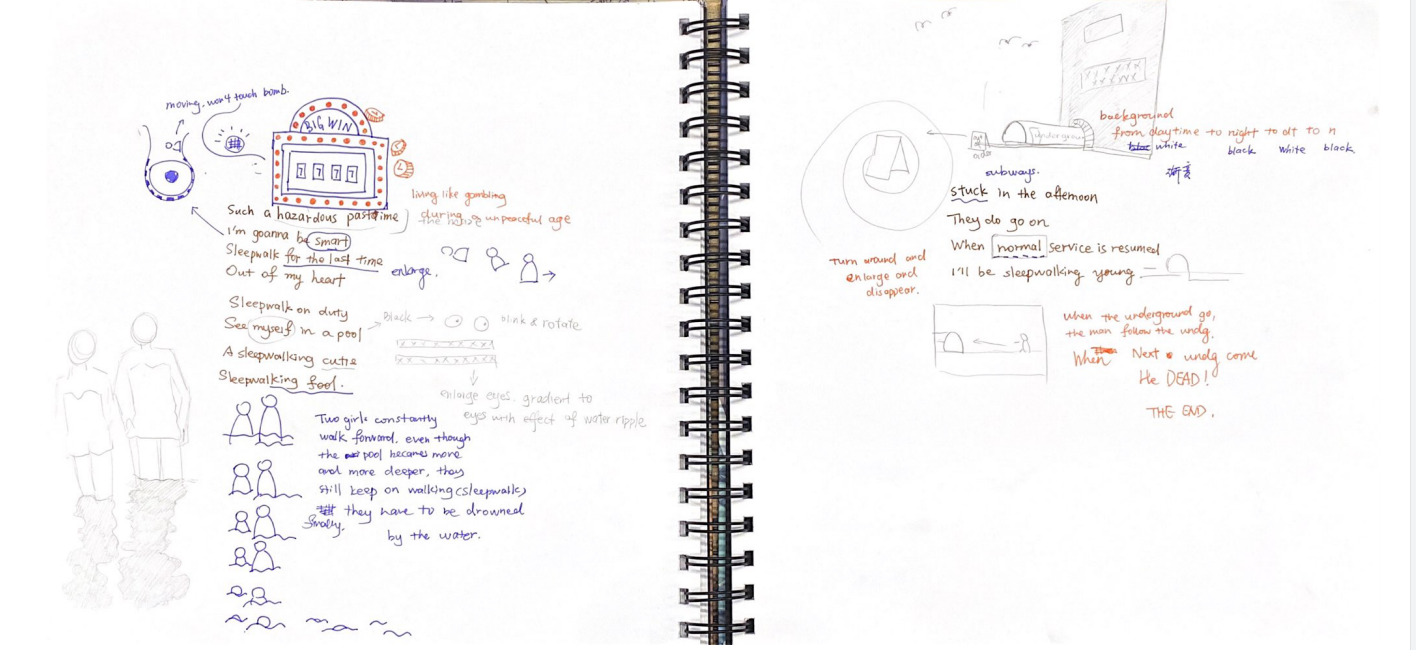 moving. won't touch bomb.
BIG WIN
7 7 7 7
living like gambling
during a unpeaceful age
Such a hazardous pastime
I'm goanna be smart
Sleepwalk for the last time
Out of my heart
enlarge.
Sleepwalk on duty
See myself in a pool
A sleepwalking cutie
Sleepwalking fool.
Black → blink & rotate
enlarge eyes. gradient to
eyes with effect of water ripple
Two girls constantly
walk forward. even though
the pool becomes more
and more deeper, they
still keep on walking (sleepwalk)
they have to be drowned
finally.
by the water.
underground
background
from daytime to night to dt to n
white black white black
渐变
subways.
stuck in the afternoon
They do go on
When normal service is resumed
I'll be sleepwalking young
Turn around and
enlarge and
disappear.
When the underground go,
the man follow the undg.
When Next undg come
He DEAD!
THE END.